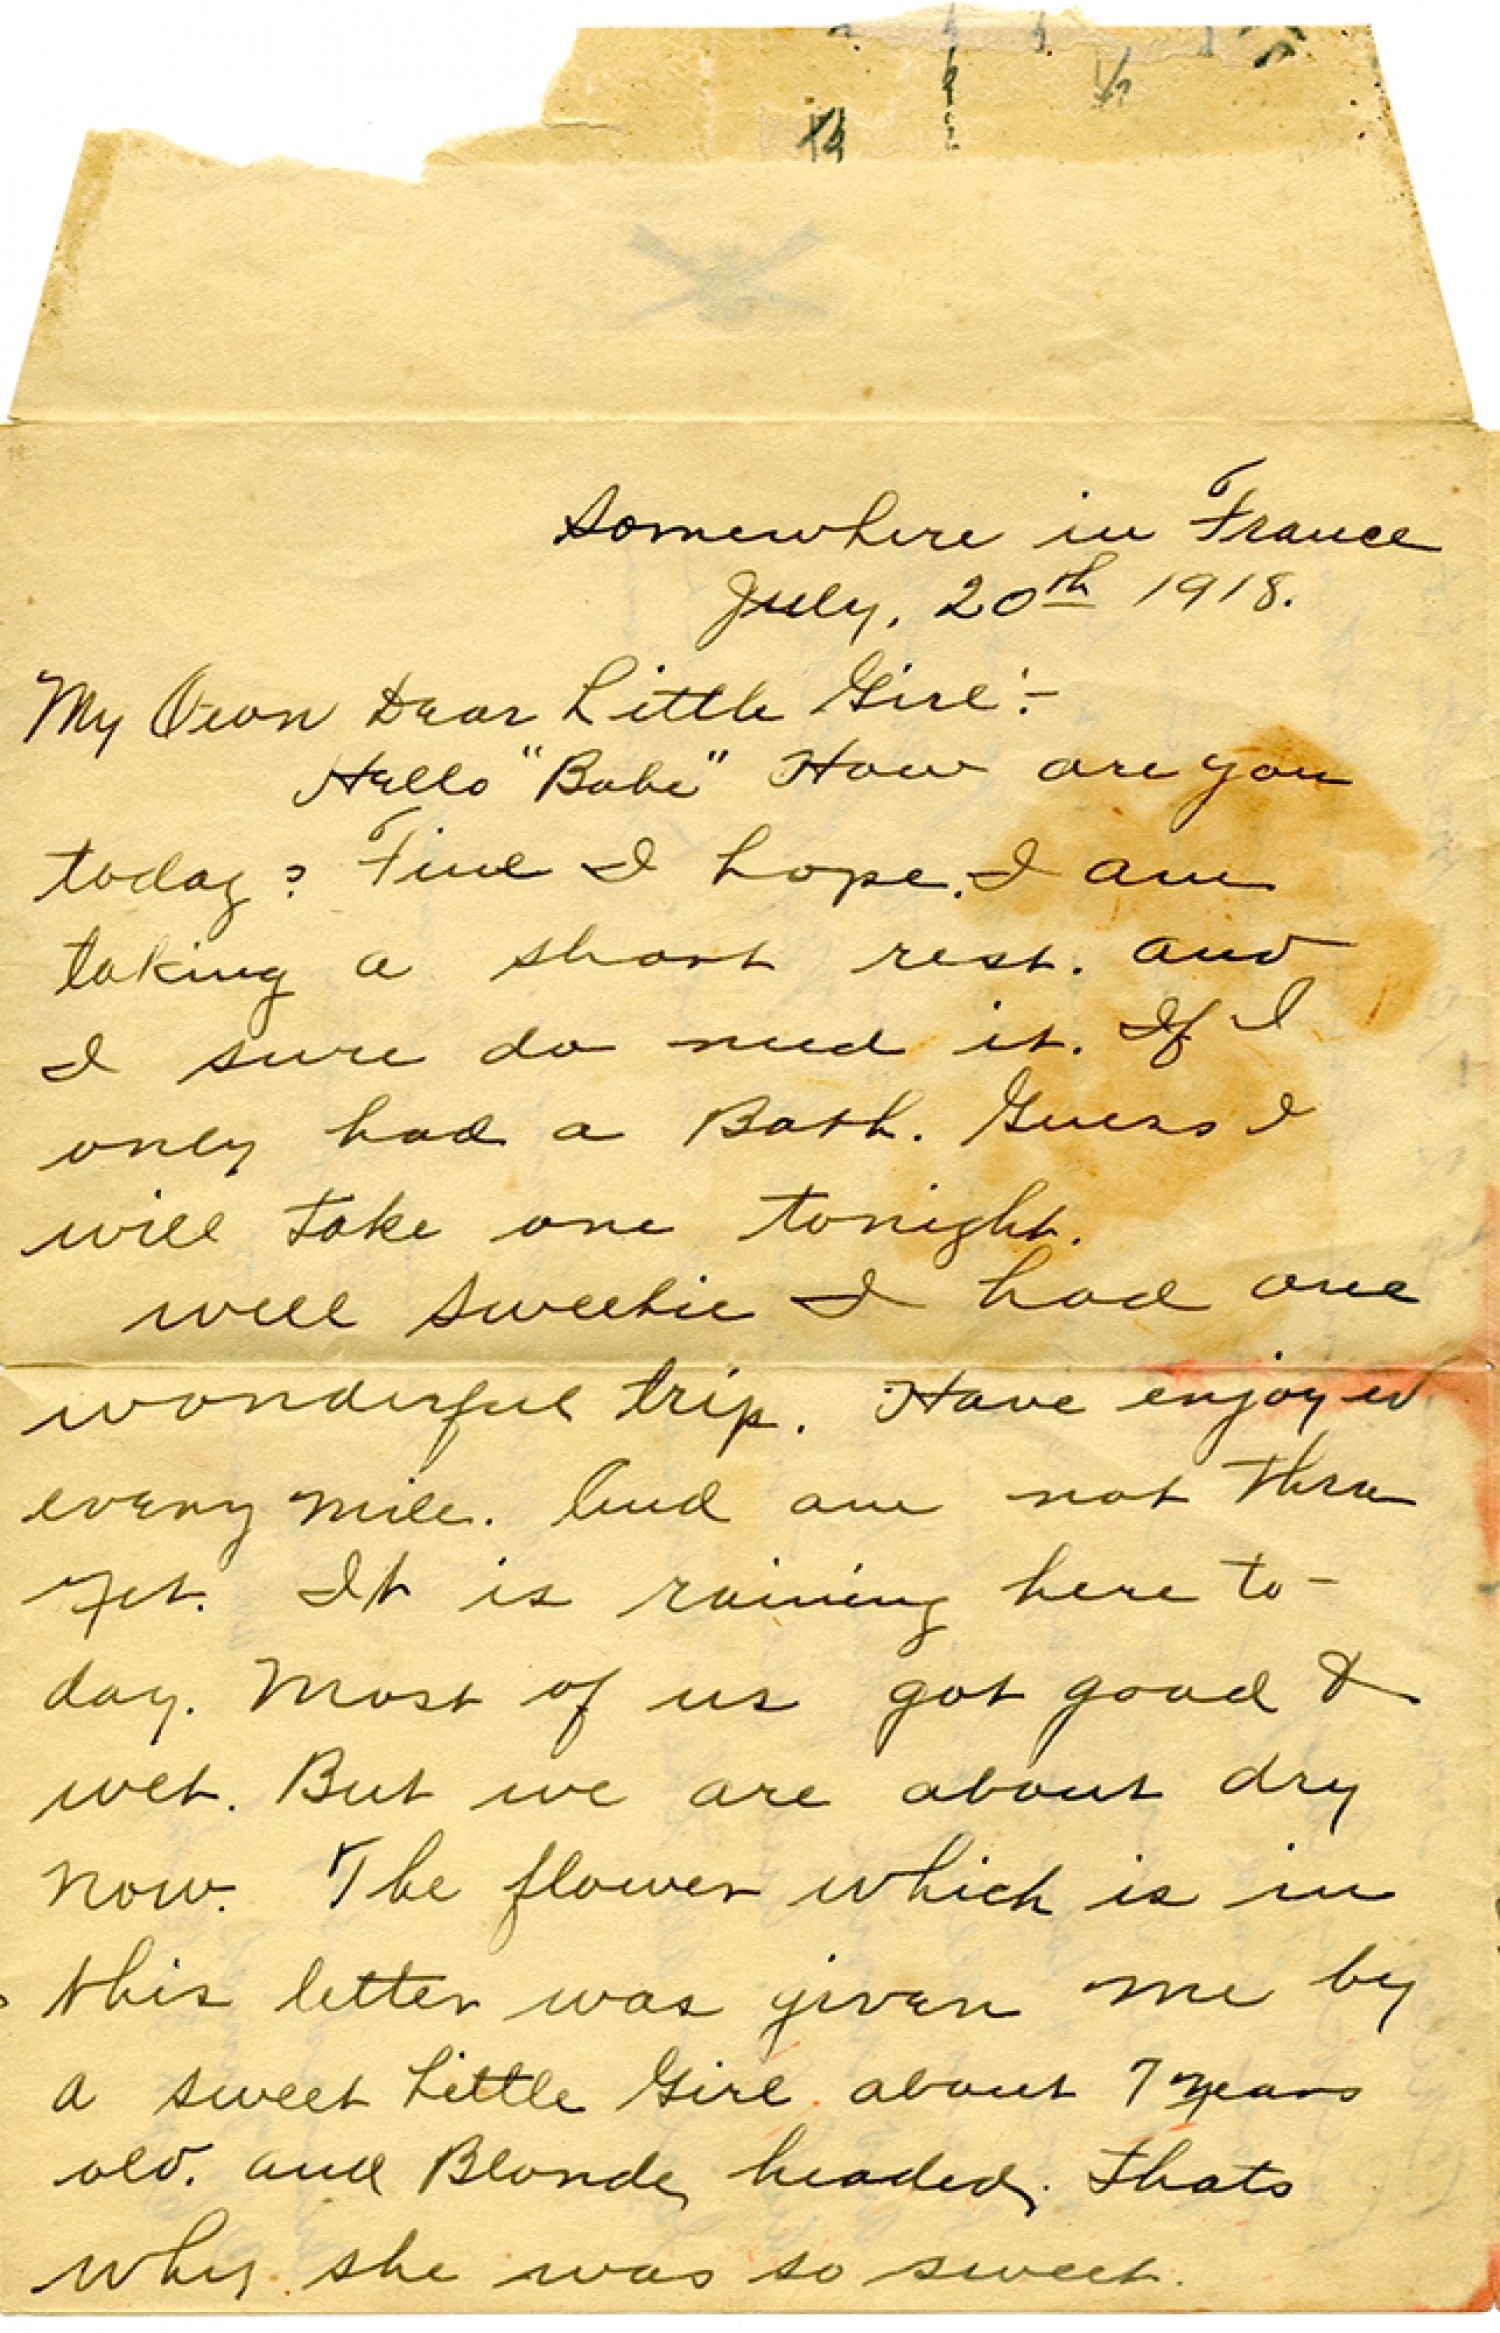 Somewhere in France
July, 20th 1918.
My Own Dear Little Girl:-
Hello "Babe" How are you
today? Fine I hope. I am
taking a short rest. and
I sure do need it. If I
only had a Bath. Guess I
will take one tonight.
well sweetie I had one
wonderful trip. Have enjoyed
every mile. And am not thru
yet. It is raining here to-
day. Most of us got good &
wet. But we are about dry
now. The flower which is in
this letter was given me by
a sweet Little Girl about 7 years
old. and Blonde headed. Thats
why she was so sweet.